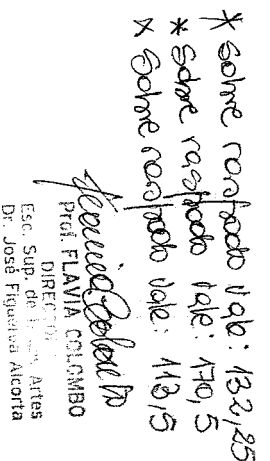 * Sobre raspado Vale: 132,25
* Sobre raspado Vale: 170,5
x Sobre raspado Vale: 113,5
Prof. FLAVIA COLOMBO
DIRECTORA
Esc. Sup. de Artes
Dr. José Figueroa Alcorta